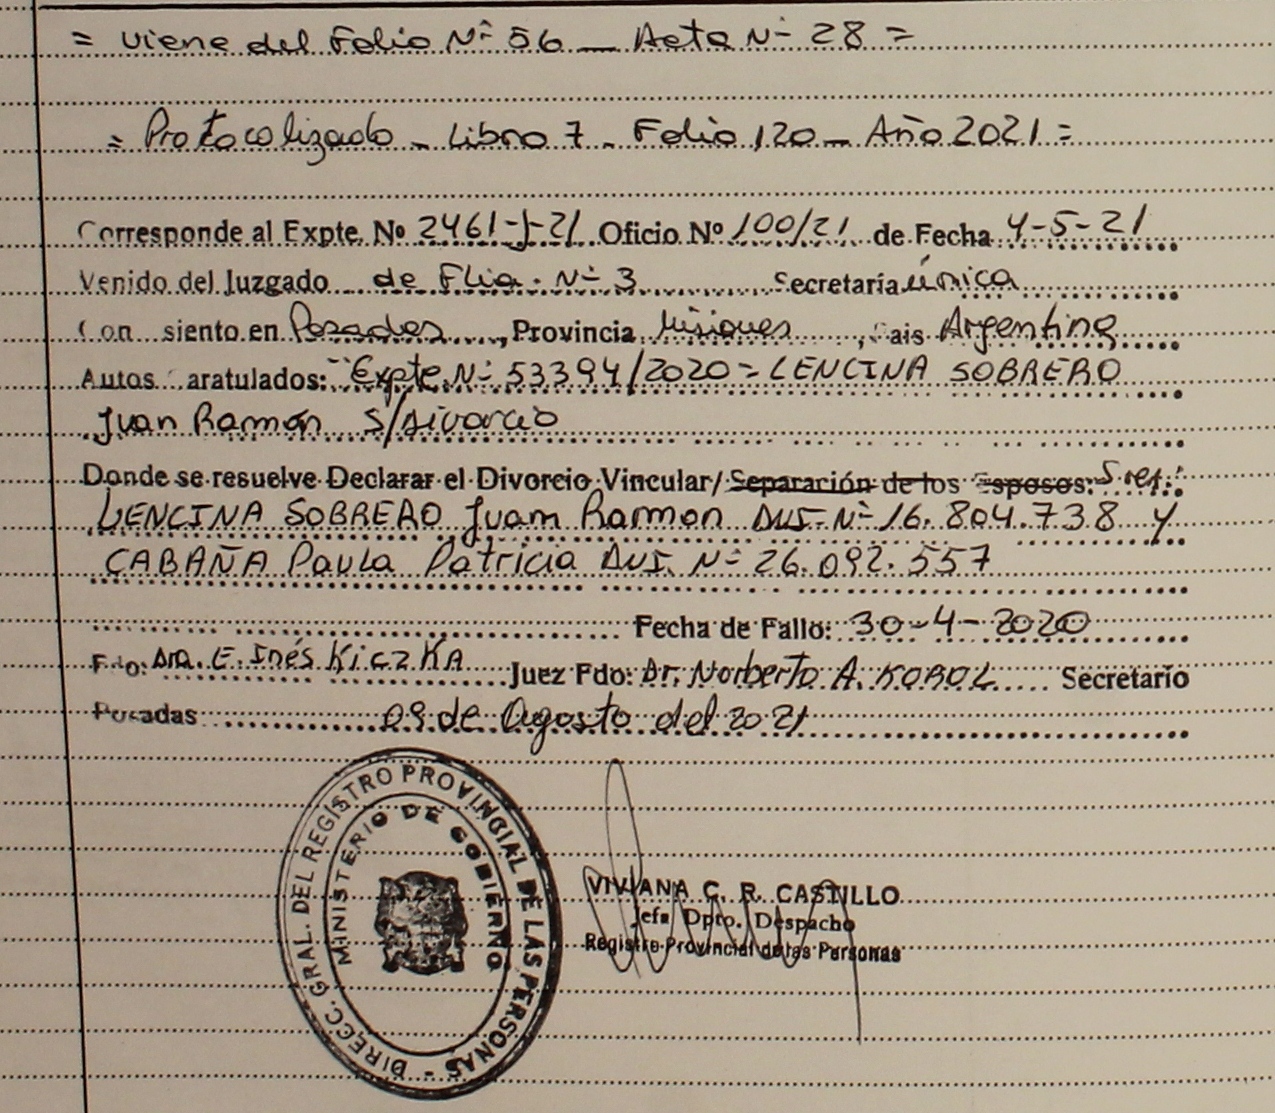 = Viene del Folio Nº 56 _ Acta Nº 28 =
= Protocolizado - Libro 7 - Folio 120 - Año 2021 =
Corresponde al Expte. Nº 2461-J-21 Oficio Nº 100/21 de Fecha 4-5-21
Venido del Juzgado de Flia. Nº 3 Secretaría única
Con siento en Posadas, Provincia Misiones, País Argentina
Autos Caratulados: "Expte. Nº 53394/2020 = LENCINA SOBRERO
Juan Ramón S/Divorcio
Donde se resuelve Declarar el Divorcio Vincular/Separación de los Esposos: Sres.:
LENCINA SOBRERO Juan Ramon DNI. Nº 16.804.738 y
CABAÑA Paula Patricia DNI. Nº 26.092.557
Fecha de Fallo: 30-4-2020
Fdo: Dra. E. Inés KiczKA Juez Fdo: Dr. Norberto A. KOROL Secretario
Posadas 09 de Agosto del 2021
DIRECC. GRAL. DEL REGISTRO PROVINCIAL DE LAS PERSONAS -
MINISTERIO DE GOBIERNO
VIVIANA C. R. CASTILLO
Jefa Dpto. Despacho
Registro Provincial de las Personas